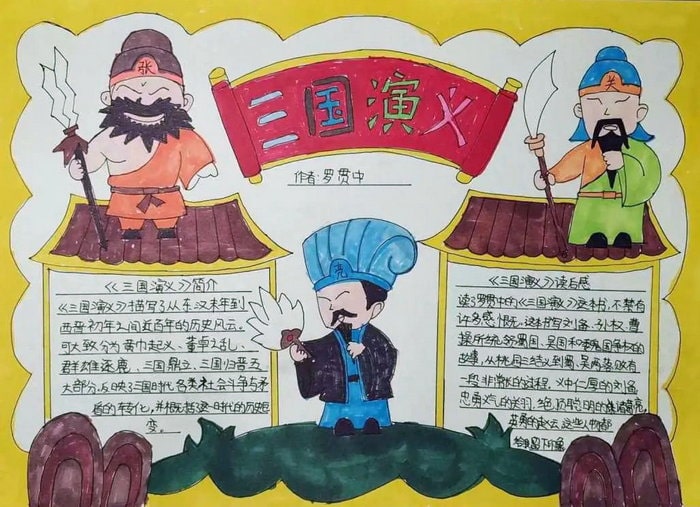 张
三国演义
关
作者:罗贯中
亮
《三国演义》简介
《三国演义》描写了从东汉末年到
西晋初年之间近百年的历史风云。
可大致分为黄巾起义、董卓之乱、
群雄逐鹿、三国鼎立、三国归晋五
大部分,反映了三国时代各类社会斗争与矛
盾的转化,并概括这一时代的历史巨
变。
《三国演义》读后感
读了罗贯中的《三国演义》这本书,不禁有
许多感慨。这本书写刘备、孙权、曹
操所统 蜀国、吴国和魏国 争权的
故事,从桃园三结义到蜀、吴两 败有
一段非常长的过程,义中仁厚的刘备
忠勇义气的关羽,绝顶聪明的诸葛亮,
英勇的赵云,这些人物都
给我留下印象